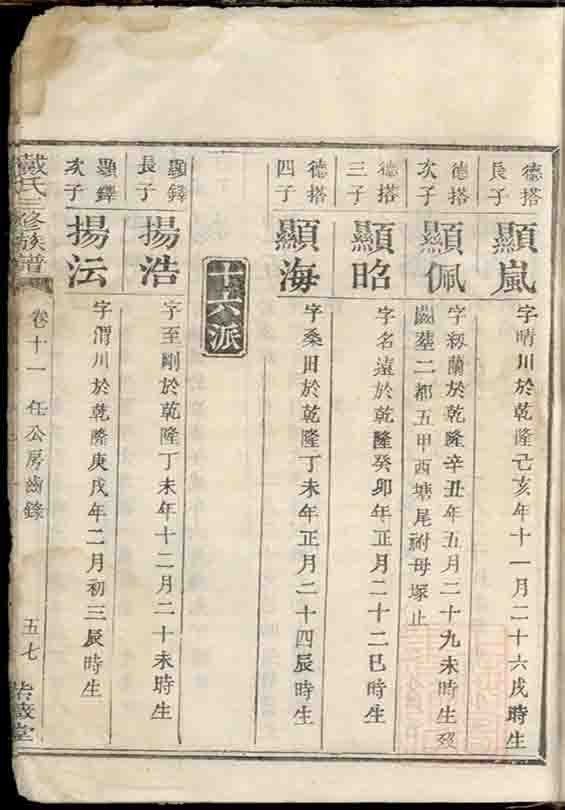 德塔長子
顯嵐
字晴川於乾隆己亥年十一月二十六戌時生
德塔次子
顯佩
字紉蘭於乾隆辛丑年五月二十九未時生歿
闕葬二都五甲西塘尾祔母塚止
德塔三子
顯昭
字名遠於乾隆癸卯年正月二十二巳時生
德塔四子
顯海
字桑田於乾隆丁未年正月二十四辰時生
十六派
顯鐸長子
揚浩
字至剛於乾隆丁未年十二月二十未時生
顯鐸次子
揚沄
字渭川於乾隆庚戌年二月初三辰時生
戴氏三修族譜
卷十一 任公房齒錄
五七